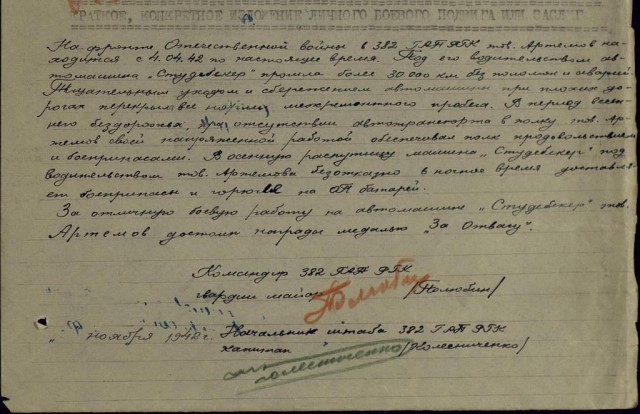 КРАТКОЕ, КОНКРЕТНОЕ ИЗЛОЖЕНИЕ ЛИЧНОГО БОЕВОГО ПОДВИГА ИЛИ ЗАСЛУГ
На фронте Отечественной войны в 382 ГАП РГК тов. Артемов на-
ходится с 4.04.42 по настоящее время. Под его водительством ав-
томашина „Студебекер" прошла более 30.000 км без поломок и аварий.
Тщательным уходом и сбережением автомашины при плохих до-
рогах перекрыл все нормы межремонтного пробега. В период весен-
него бездорожья, при отсутствии автотранспорта в полку тов. Ар-
темов своей напряженной работой обеспечивал полк продовольствием
и боеприпасами. В осеннюю распутицу машина „Студебекер" под
водительством тов. Артемова безотказно в ночное время доставля-
ет боеприпасы и горючее на ОП батарей.
За отличную боевую работу на автомашине „Студебекер" тов.
Артемов достоин награды медалью „За Отвагу".
Командир 382 ГАП РГК
гвардии майор /Полюбин/
ноября 1942 г. Начальник штаба 382 ГАП РГК
капитан /Колесниченко/